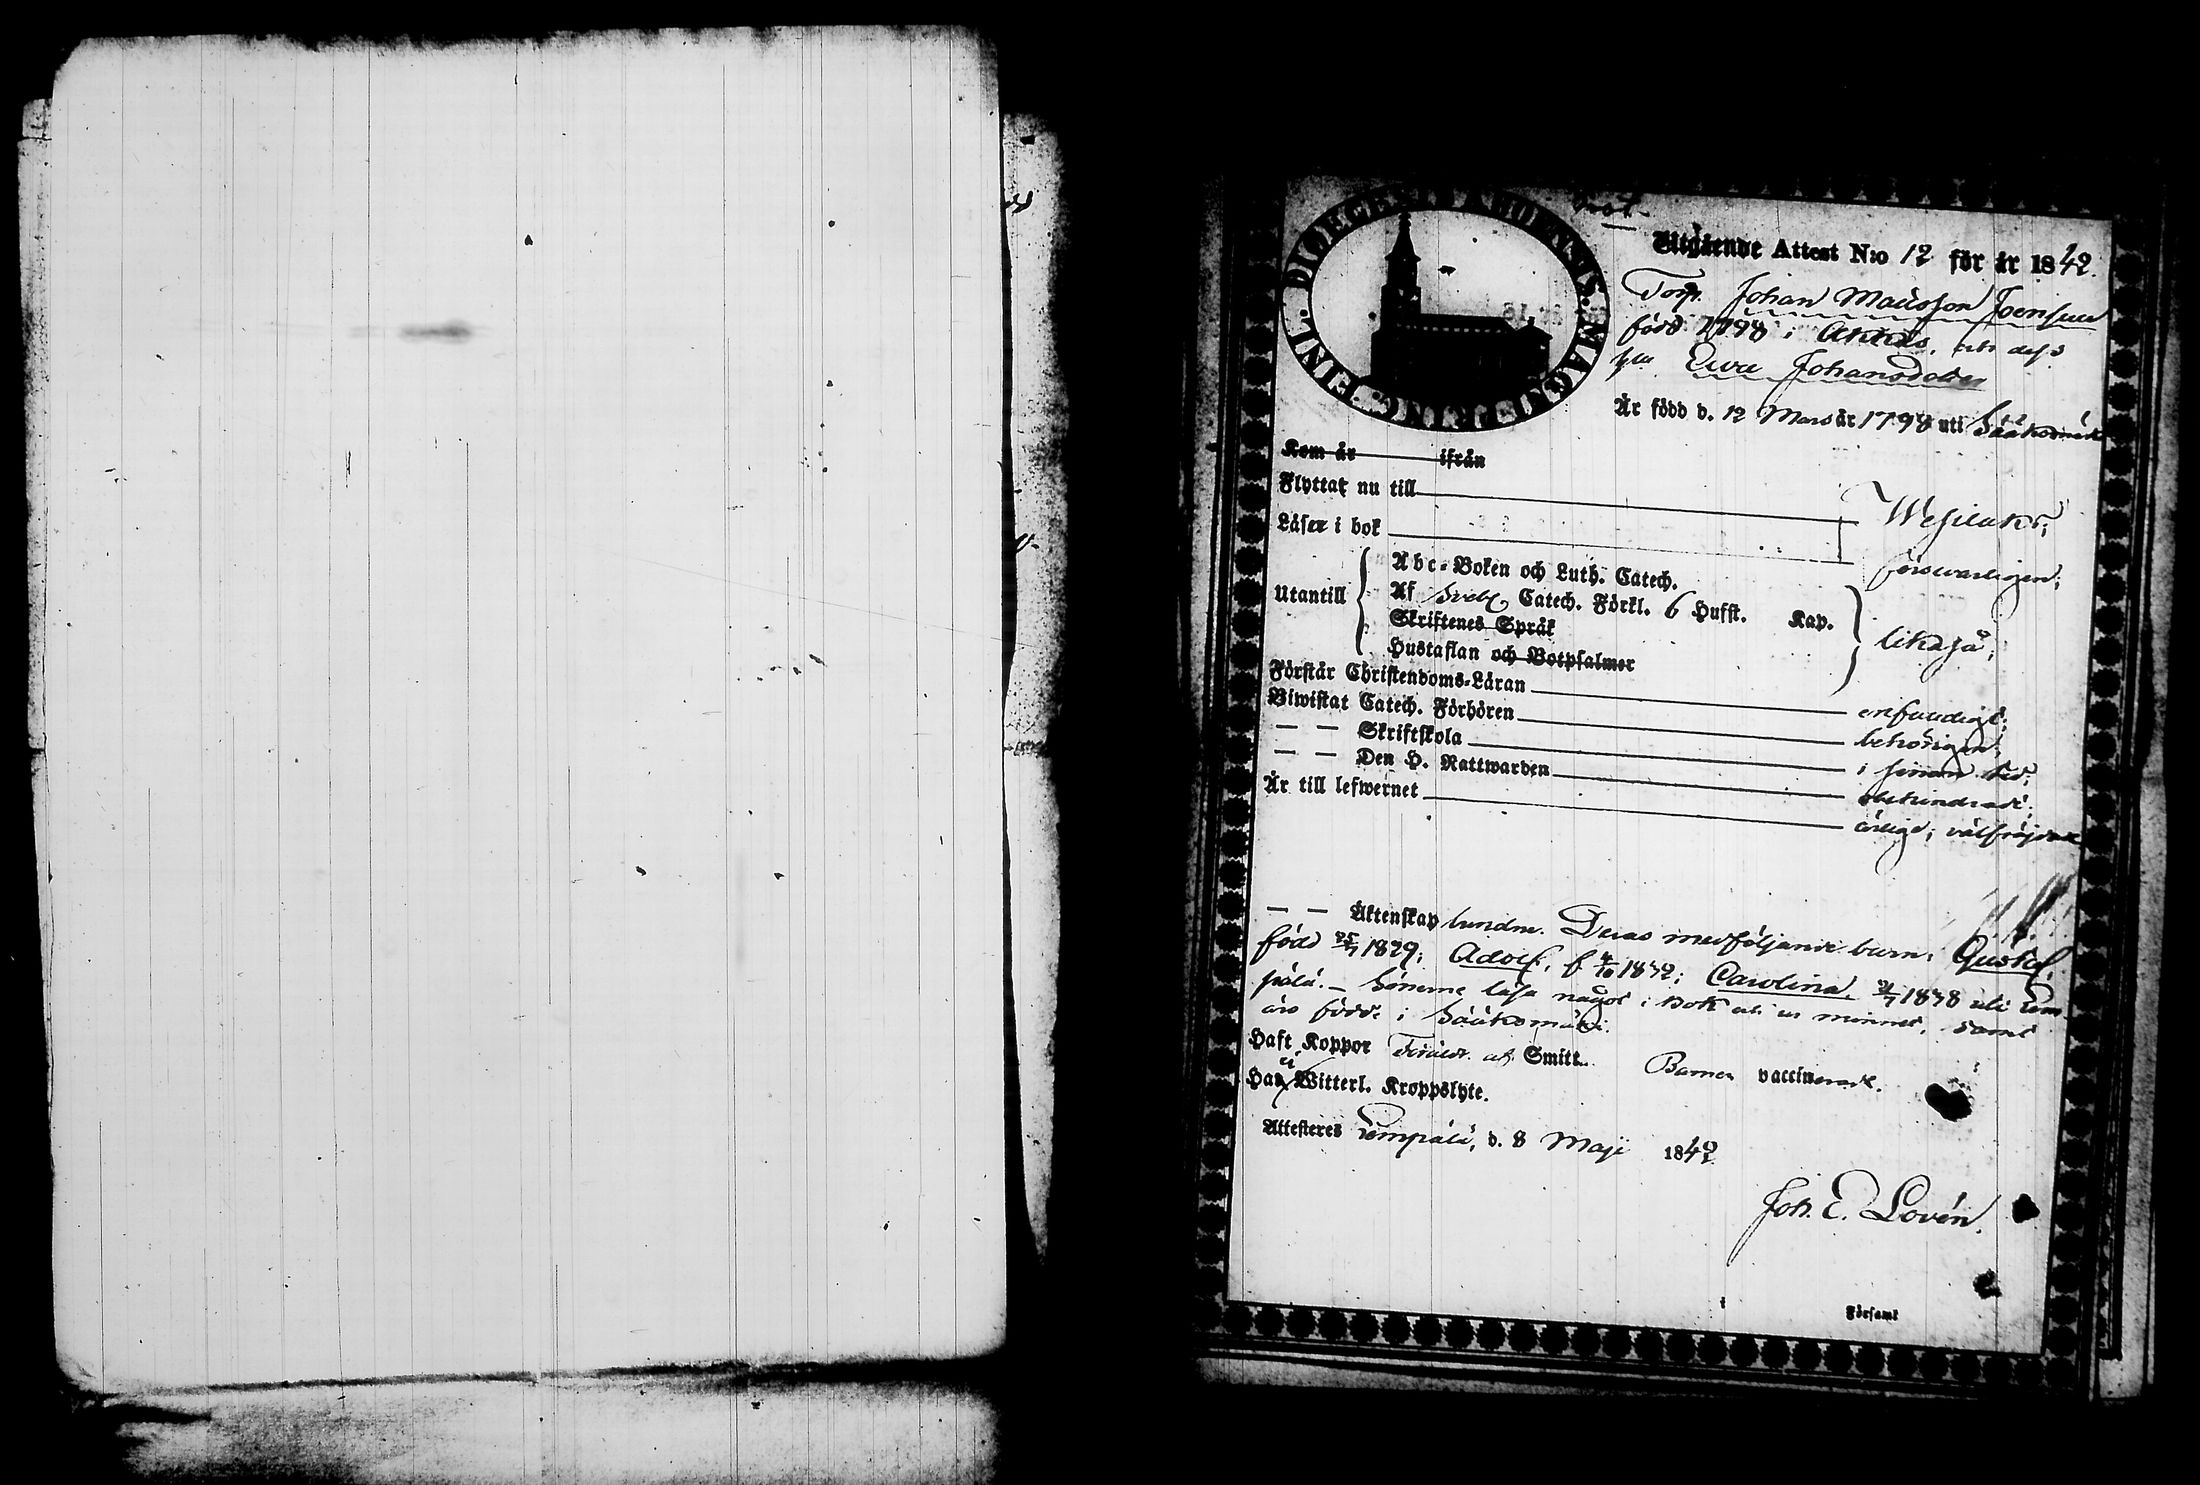 DIOECESIS ABOENSIS. MAGNI PRINC. FINL.
Utgående Attest N:o 12 för år 1842.
Torp. Johan Mattsson
född 1798 i Akkas, och dess
hu Ewa Johansdotter
Är född d. 12 Mars år 1798 uti Sääksmäki
Kom år ifrån
Flyttar nu till Wesilaks;
Läser i bok försvarligen;
Abc-Boken och Luth. Catech.
Utantill Af Sveb. Catech. Förkl. 6 Hufst. Kap. likaså;
Skriftenes Språk
Hustaflan och Botpsalmer
Förstår Christendoms-Läran enfaldigt;
Biwistat Catech. Förhören behörigen;
— — Skriftskola i sinom tid;
— — Den H. Nattwarden obehindrade;
Är till lefwernet ärlige, välfrejdade
— — Äktenskap bundne. Deras medföljande barn: Gustaf,
född 25/7 1829; Adolf, f 4/10 1832; Carolina, 21/7 1838 uti Lem-
pälä. — Sönerne läsa något i bok och ur minnet, samt
äro födde i Sääksmäki.
Haft Koppor Föräldr. af Smitt. Barnen vaccinerade.
Har ej Witterl. Kroppslyte.
Attesteres Lempälä, d. 8 Maji 1842
Joh. E. Lovén.
Församl